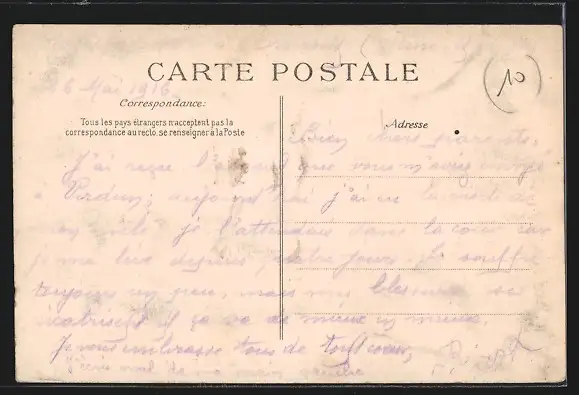 CARTE POSTALE
10
6 Mai 1916
Correspondance:
Tous les pays étrangers n'acceptent pas la
correspondance au recto, se renseigner à la Poste
Adresse
Bien chers parents,
J'ai reçu l'argent que vous m'avez envoyé
à Verdun; aujourd'hui j'ai eu la visite de
je l'attendais dans la cour car
je me lève depuis quatre jours. Je souffre
toujours un peu, mais mes blessures se
cicatrisent et ça va de mieux en mieux.
Je vous embrasse tous de tout cœur,
J'écris mal de ma main gauche